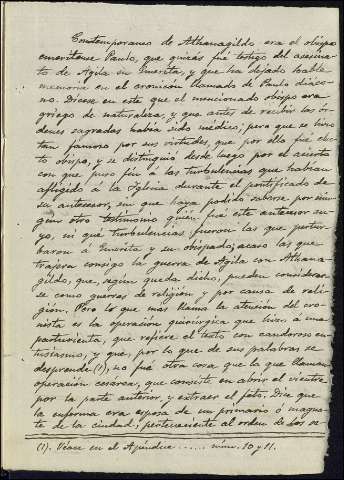 Contemporaneo de Athanagildo era el obispo
emeritense Paulo, que quizás fué testigo del asesina-
to de Agila en Emerita, y que ha dejado noble
memoria en el cronicon llamado de Paulo diáco-
no. Dícese en este que el mencionado obispo era
griego de naturaleza, y que antes de recibir las ór-
denes sagradas había sido médico; pero que se hizo
tan famoso por sus virtudes, que por ello fué elec-
to obispo, y se distinguió desde luego por el acierto
con que puso fin á las turbulencias que habían
afligido á la Iglesia durante el pontificado de
su antecesor, sin que haya podido saberse por nin-
gun otro testimonio quién fué este antecesor su-
yo, ni qué turbulencias fueron las que pertur-
baron á Emerita y su obispado; acaso las que
trajera consigo la guerra de Agila con Athana-
gildo, que, según queda dicho, pueden considerar-
se como guerras de religión y por causa de reli-
gión. Pero lo que más llama la atención del cro-
nista es la operación quirúrgica que hizo á una
parturienta, que refiere el texto con candoroso en-
tusiasmo, y que, por lo que de sus palabras se
desprende (1), no fué otra cosa que la que llaman
operación cesarea, que consiste en abrir el vientre
por la parte anterior, y extraer el feto. Dice que
la enferma era esposa de un primario ó magna-
te de la ciudad, perteneciente al orden de los se-
(1). Véase en el Apéndice ...... núm. 10 y 11.